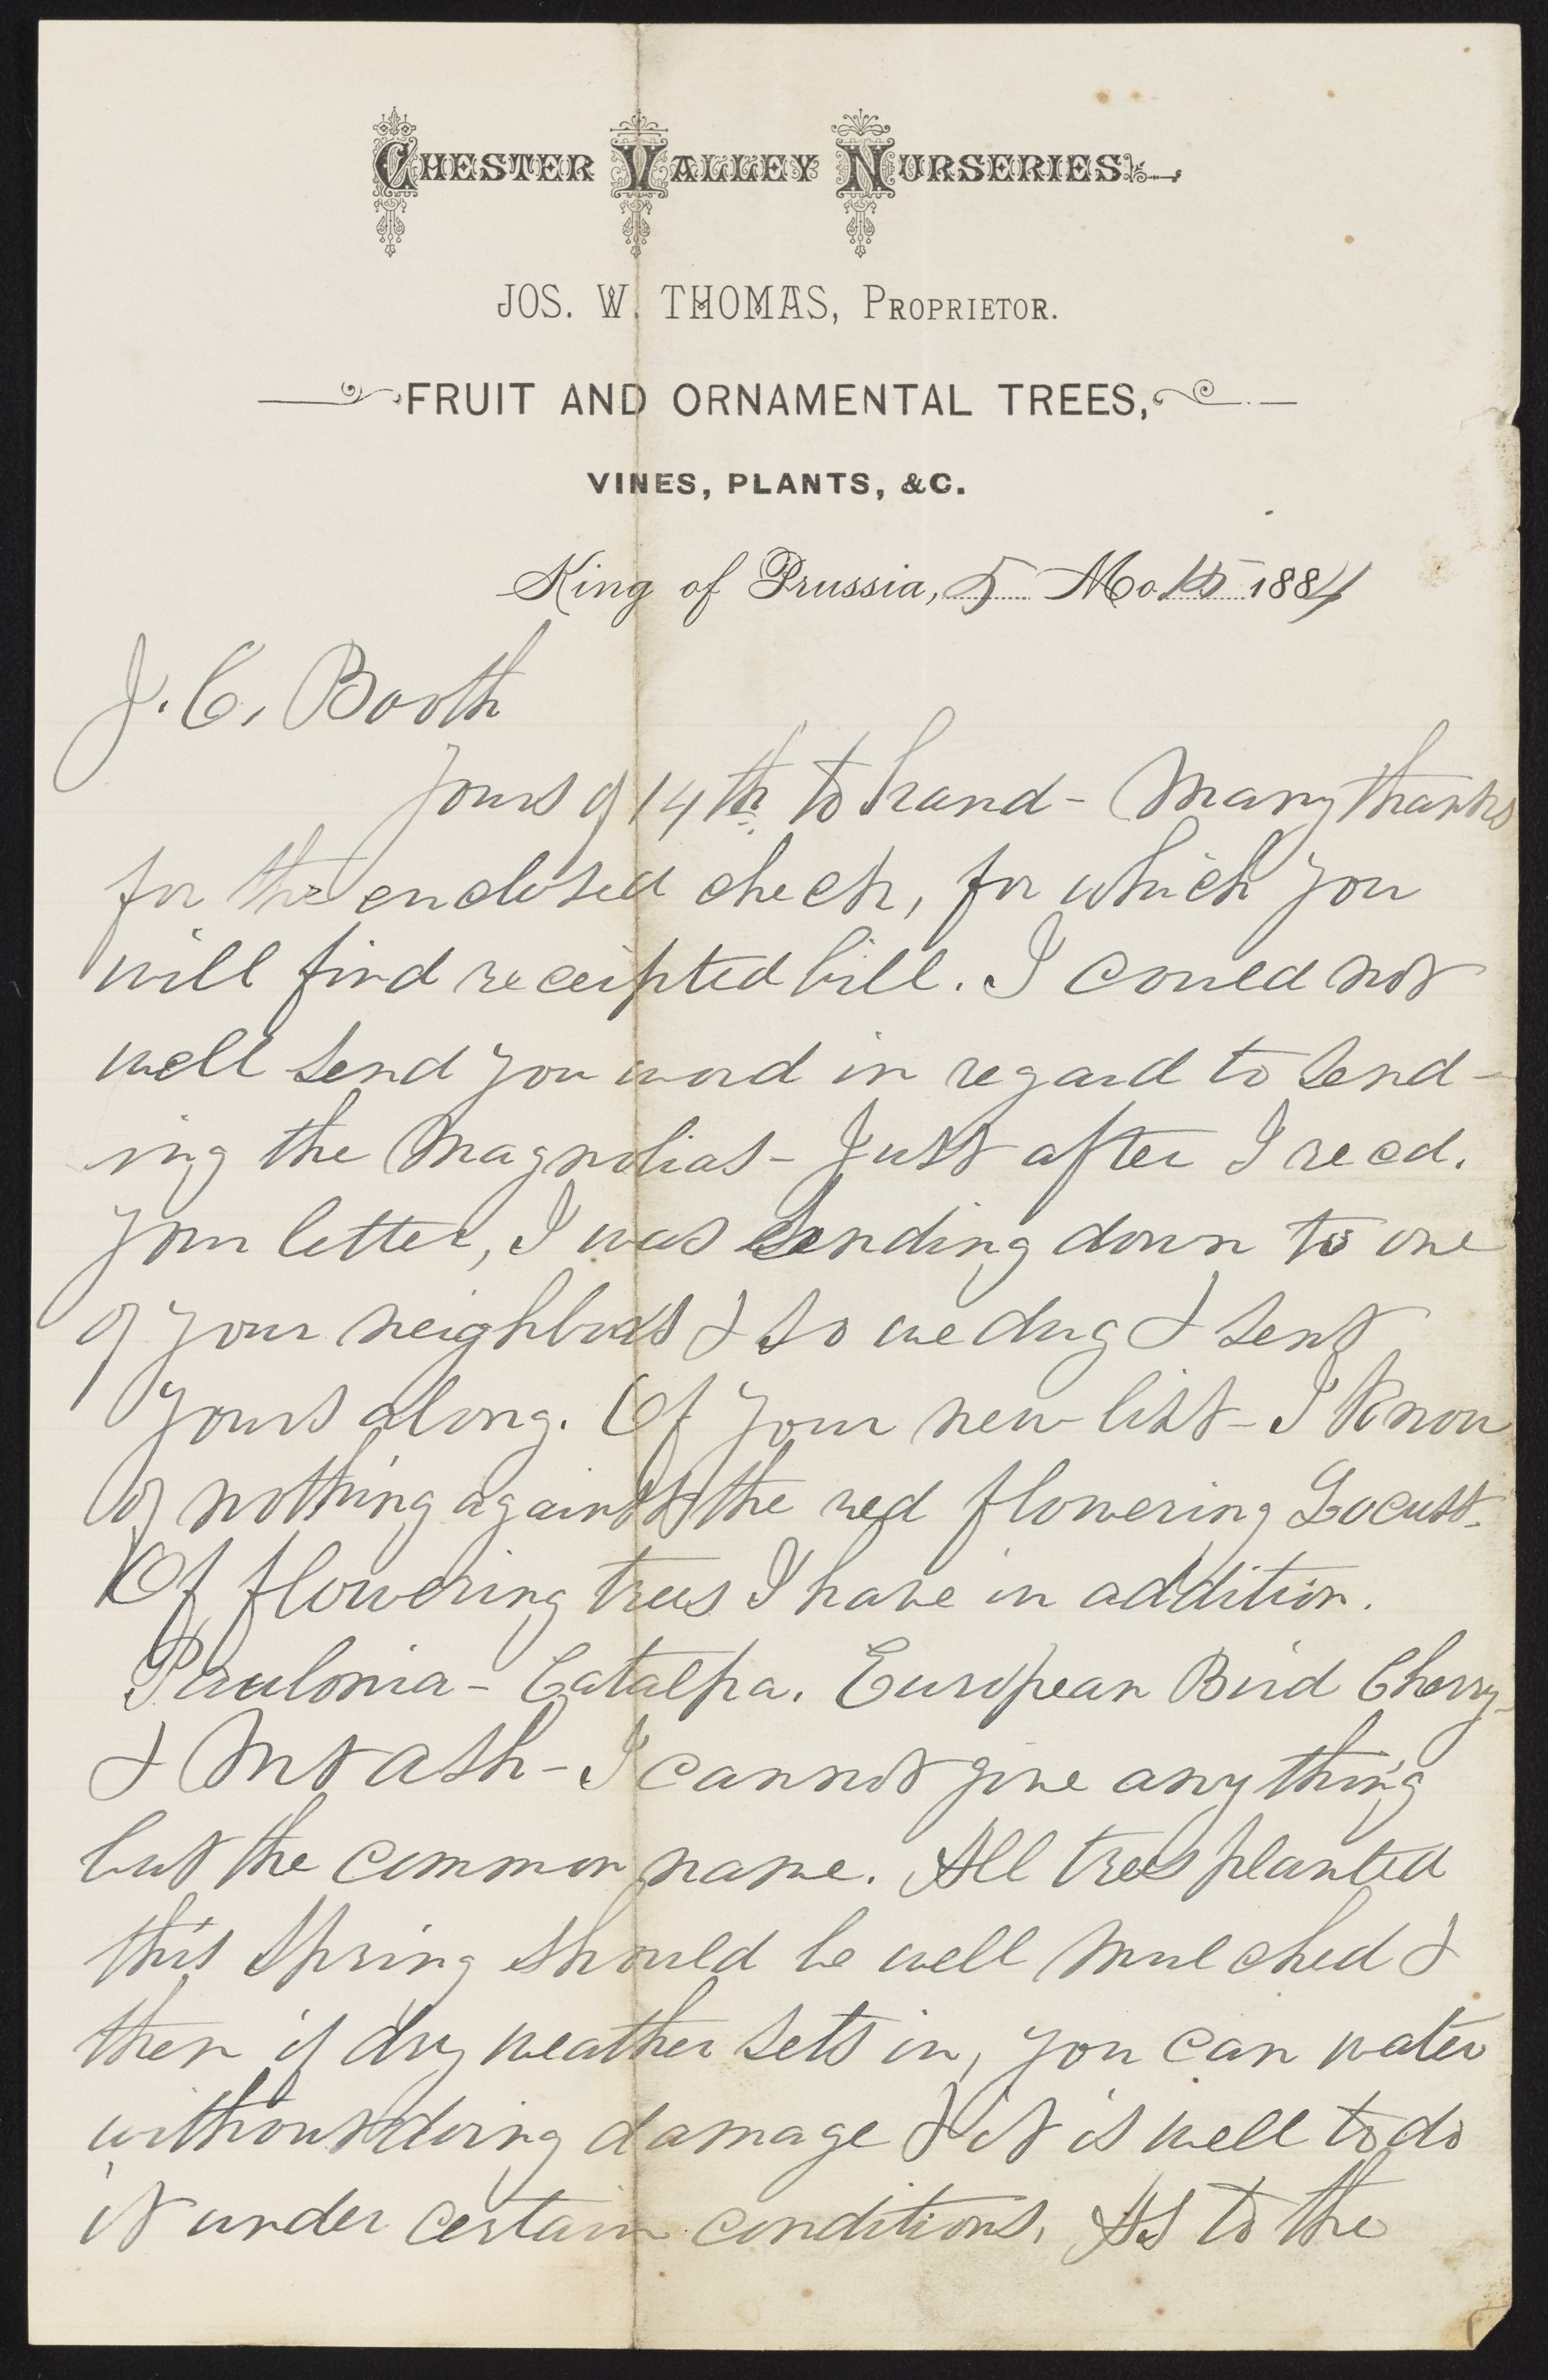 CHESTER VALLEY NURSERIES
JOS. W. THOMAS, PROPRIETOR.
FRUIT AND ORNAMENTAL TREES,
VINES, PLANTS, &C.
King of Prussia, 5 Mo 15 1884
J. C. Booth
Yours of 14th to hand - Many thanks
for the enclosed check, for which you
will find receipted bill. I could not
well send you word in regard to send-
ing the Magnolias - Just after I recd.
your letter, I was sending down to one
of your neighbors & so we dug & sent
yours along. Of your new list - I know
of nothing against the red flowering Locust.
Of flowering trees I have in addition.
Paulonia - Catalpa. European Bird Cherry -
& Mt Ash - I cannot give any thing
but the common name. All trees planted
this Spring should be well mulched &
then if dry weather sets in, you can water
without doing damage & it is well to do
it under certain conditions. As to the